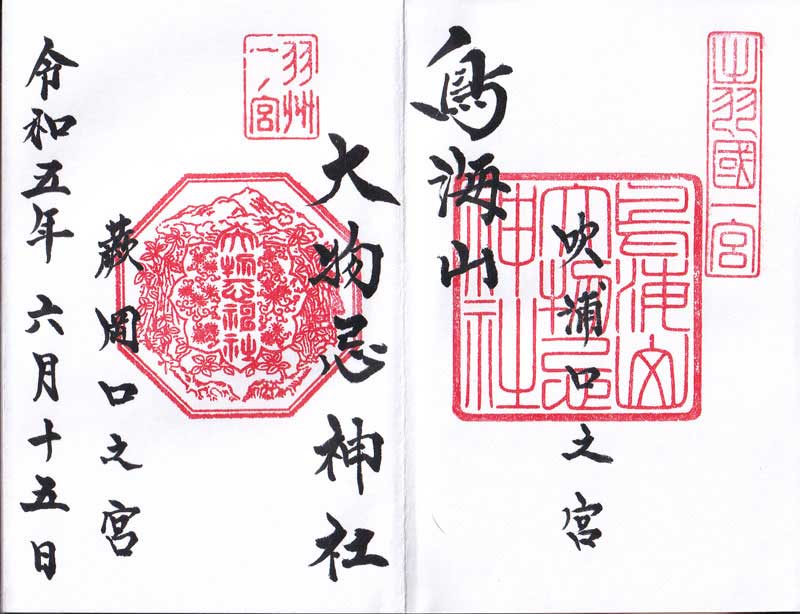 出羽國一宮
鳥海山
大物忌
神社
吹浦口之宮
鳥海山
大物忌神社
羽州
一ノ宮
大物忌神社
蕨岡口之宮
令和五年六月十五日